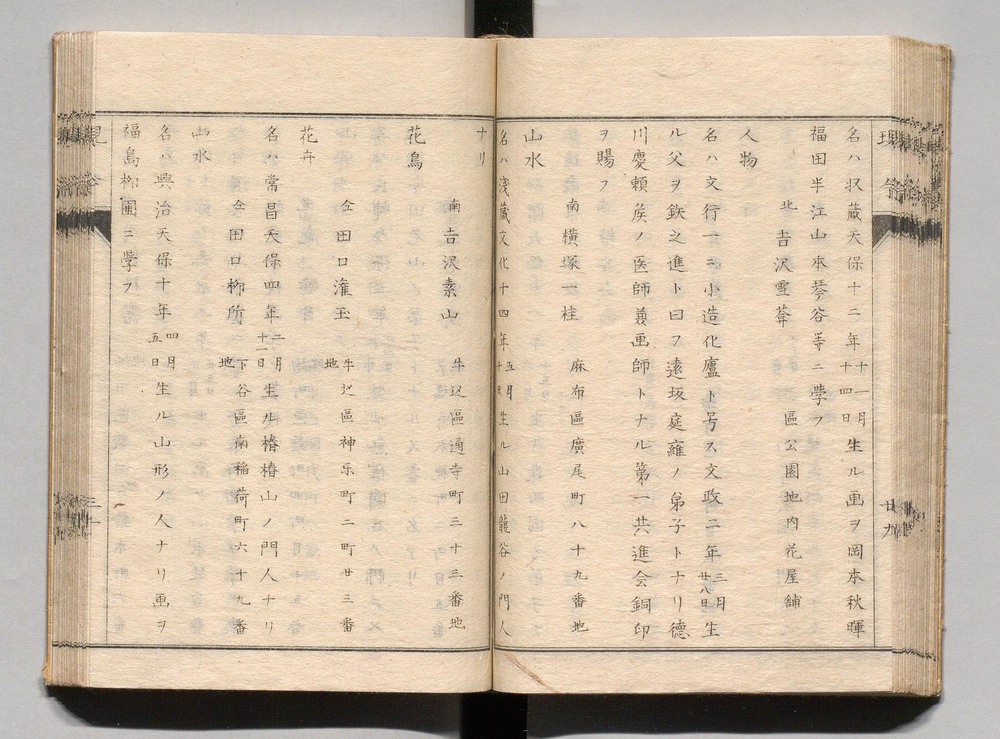 名ハ収蔵天保十二年十一月十四日生ル画ヲ岡本秋暉
福田半江山本琴谷等ニ學フ
北 吉沢雪菴 區公園地内花屋舗
人物
名ハ文行一ニ小造化廬ト号ス文政二年三月廿八日生
ル父ヲ欽之進ト曰フ遠坂庭雍ノ弟子トナリ徳
川慶頼矦ノ医師兼画師トナル第一共進会銅印
ヲ賜フ
南 横塚一桂 麻布區廣尾町八十九番地
山水
名ハ浅蔵文化十四年五月生ル山田龍谷ノ門人
ナリ
南 吉沢素山 牛込區通寺町三十三番地
花鳥
仝 田口滝玉 牛込區神乐町二町廿三番地
花卉
名ハ常昌天保四年二月十日生ル椿椿山ノ門人ナリ
仝 田口柳所 下谷區南稲荷町六十九番地
山水
名ハ興治天保十年四月五日生ル山形ノ人ナリ画ヲ
福島柳圃ニ學フ
廿九
三十